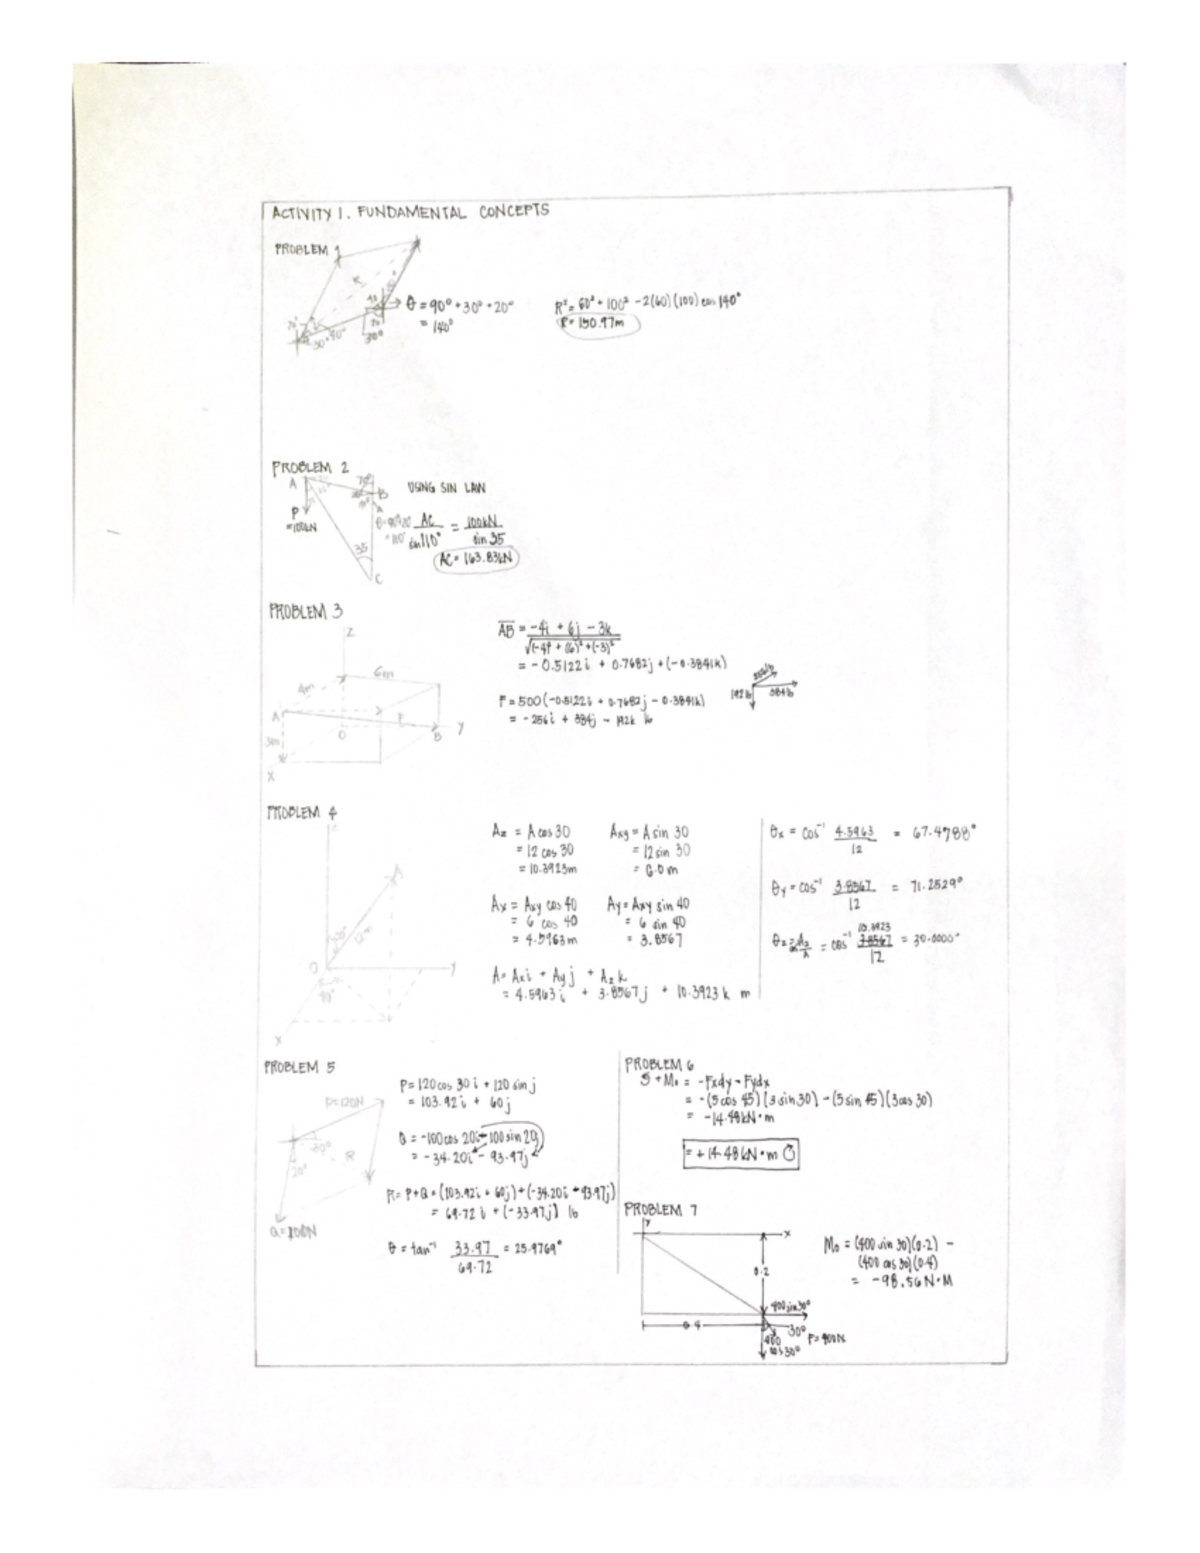 ACTIVITY 1. FUNDAMENTAL CONCEPTS
PROBLEM 1
θ = 90° + 30° + 20°
= 140°
30°
R² = 60² + 100² - 2(60)(100) cos 140°
R = 150.97m
PROBLEM 2
A
B
USING SIN LAW
P
= 100kN
35
C
AC / sin 110° = 100kN / sin 35
AC = 163.83kN
PROBLEM 3
Z
6m
4m
A
3m
O
F
B
y
X
AB = -4i + 6j - 3k / √(-4)² + (6)² + (-3)²
= -0.5122i + 0.7682j + (-0.3841k)
F = 500(-0.5122i + 0.7682j - 0.3841k)
= -256i + 384j - 192k lb
256lb
192lb
384lb
PROBLEM 4
A
12m
O
X
Az = A cos 30
= 12 cos 30
= 10.3923m
Axy = A sin 30
= 12 sin 30
= 6.0m
Ax = Axy cos 40
= 6 cos 40
= 4.5963m
Ay = Axy sin 40
= 6 sin 40
= 3.8567
A = Axi + Ayj + Azk
= 4.5963i + 3.8567j + 10.3923k m
θx = cos⁻¹ 4.5963 / 12 = 67.4788°
θy = cos⁻¹ 3.8567 / 12 = 71.2529°
θz = Az / A = cos⁻¹ 10.3923 / 12 = 30.0000°
PROBLEM 5
P=120N
30°
20°
R
Q=100N
P = 120 cos 30 i + 120 sin j
= 103.92i + 60j
Q = -100 cos 20i - 100 sin 20j
= -34.20i - 93.97j
R = P+Q = (103.92i + 60j) + (-34.20i - 93.97j)
= 69.72i + (-33.97j) lb
θ = tan⁻¹ 33.97 / 69.72 = 25.9769°
PROBLEM 6
+ Mo = -Fxdy - Fydx
= -(5 cos 45)(3 sin 30) - (5 sin 45)(3 cos 30)
= -14.49kN·m
= +14.48kN·m
PROBLEM 7
y
x
0.2
0.4
400 sin 30°
30°
F=400N
400
cos 30°
Mo = (400 sin 30)(0.2) -
(400 cos 30)(0.4)
= -98.56 N·M